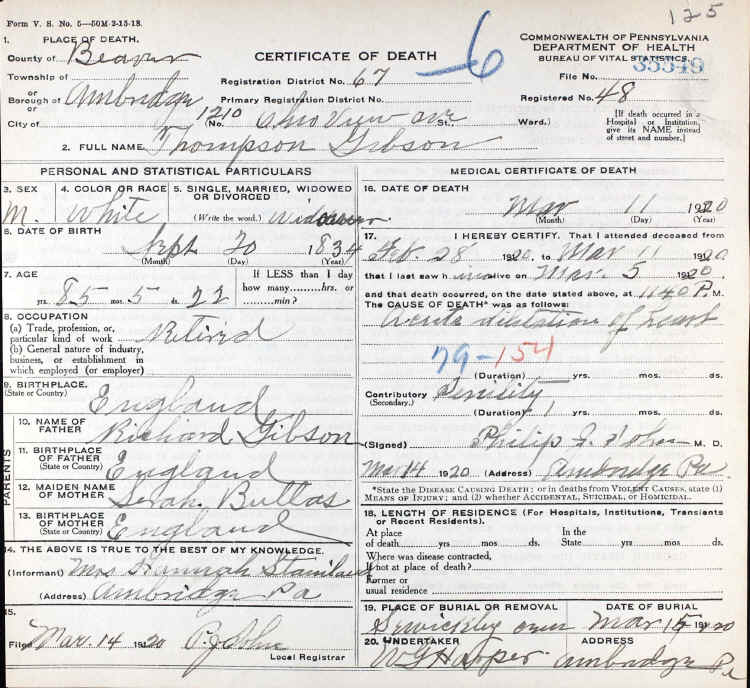 Form V. S. No. 5—50M-2-15-18.
125
1. PLACE OF DEATH.
County of Beaver
Township of
or
Borough of Ambridge
or
City of
CERTIFICATE OF DEATH
Registration District No. 67
Primary Registration District No.
(No. 1210 Ohio View ave St., Ward.)
6
COMMONWEALTH OF PENNSYLVANIA
DEPARTMENT OF HEALTH
BUREAU OF VITAL STATISTICS.
File No. 35549
Registered No. 48
[If death occurred in a
Hospital or Institution,
give its NAME instead
of street and number.]
2. FULL NAME Thompson Gibson
PERSONAL AND STATISTICAL PARTICULARS
3. SEX
M.
4. COLOR OR RACE
White
5. SINGLE, MARRIED, WIDOWED
OR DIVORCED
(Write the word.) Widower
6. DATE OF BIRTH
Sept 20 1834
(Month) (Day) (Year)
7. AGE
85 yrs. 5 mos. 22 ds.
If LESS than 1 day
how many........hrs. or
........min.?
8. OCCUPATION
(a) Trade, profession, or,
particular kind of work Retird
(b) General nature of industry,
business, or establishment in
which employed (or employer)
9. BIRTHPLACE.
(State or Country) England
PARENTS
10. NAME OF
FATHER Richard Gibson
11. BIRTHPLACE
OF FATHER
(State or Country) England
12. MAIDEN NAME
OF MOTHER Sarah Bullas
13. BIRTHPLACE
OF MOTHER
(State or Country) England
14. THE ABOVE IS TRUE TO THE BEST OF MY KNOWLEDGE.
(Informant) Mrs Hannah
(Address) Ambridge Pa
15.
Filed Mar. 14 1920
Local Registrar
MEDICAL CERTIFICATE OF DEATH
16. DATE OF DEATH
Mar 11 1920
(Month) (Day) (Year)
17. I HEREBY CERTIFY, That I attended deceased from
Feb. 28 1920 to Mar 11 1920
that I last saw him alive on Mar. 5 1920.
and that death occurred, on the date stated above, at 1140 P. M.
The CAUSE OF DEATH* was as follows:
Acute dilatation of heart
79-154
(Duration) yrs. mos. ds.
Contributory Senility
(Secondary.)
(Duration) 1 yrs. mos. ds.
(Signed) Philip M. D.
Mar 14 1920 (Address) Ambridge Pa
*State the DISEASE CAUSING DEATH; or in deaths from VIOLENT CAUSES, state (1)
MEANS OF INJURY; and (2) whether ACCIDENTAL, SUICIDAL, OR HOMICIDAL.
18. LENGTH OF RESIDENCE (For Hospitals, Institutions, Transients
or Recent Residents).
At place
of death yrs. mos. ds.
In the
State yrs. mos. ds.
Where was disease contracted,
if not at place of death?
Former or
usual residence
19. PLACE OF BURIAL OR REMOVAL
Sewickley
DATE OF BURIAL
Mar 15 1920
20. UNDERTAKER
W G Harper
ADDRESS
Ambridge Pa